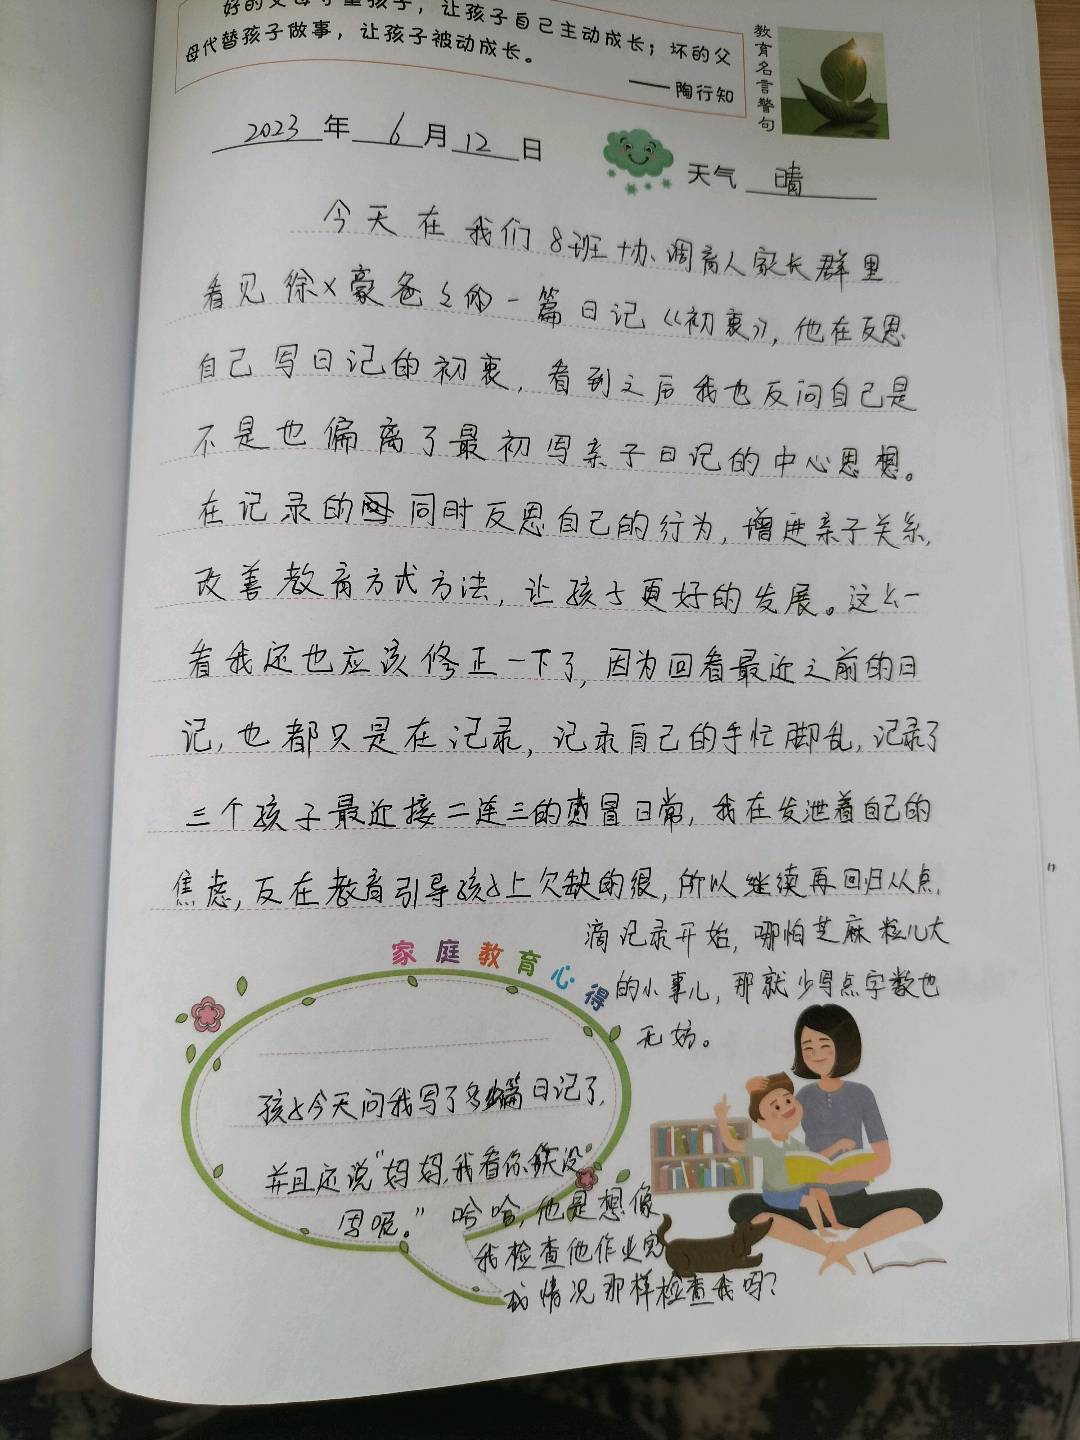 好的父母守望孩子，让孩子自己主动成长；坏的父
母代替孩子做事，让孩子被动成长。
——陶行知
教育名言警句
2023年6月12日
天气 晴
今天在我们8班协调育人家长群里
看见徐×豪爸爸的一篇日记《初衷》，他在反思
自己写日记的初衷，看到之后我也反问自己是
不是也偏离了最初写亲子日记的中心思想。
在记录的同时反思自己的行为，增进亲子关系，
改善教育方式方法，让孩子更好的发展。这么一
看我还也应该修正一下了，因为回看最近之前的日
记，也都只是在记录，记录自己的手忙脚乱，记录了
三个孩子最近接二连三的感冒日常，我在发泄着自己的
焦虑，反在教育引导孩子上欠缺的很，所以继续再回归从点
滴记录开始，哪怕芝麻粒儿大
的小事儿，那就少写点字数也
无妨。
家庭教育心得
孩子今天问我写了多少篇日记了，
并且还说“妈妈，我看你几天没
写呢。”哈哈，他是想像
我检查他作业完
成情况那样检查我吗？